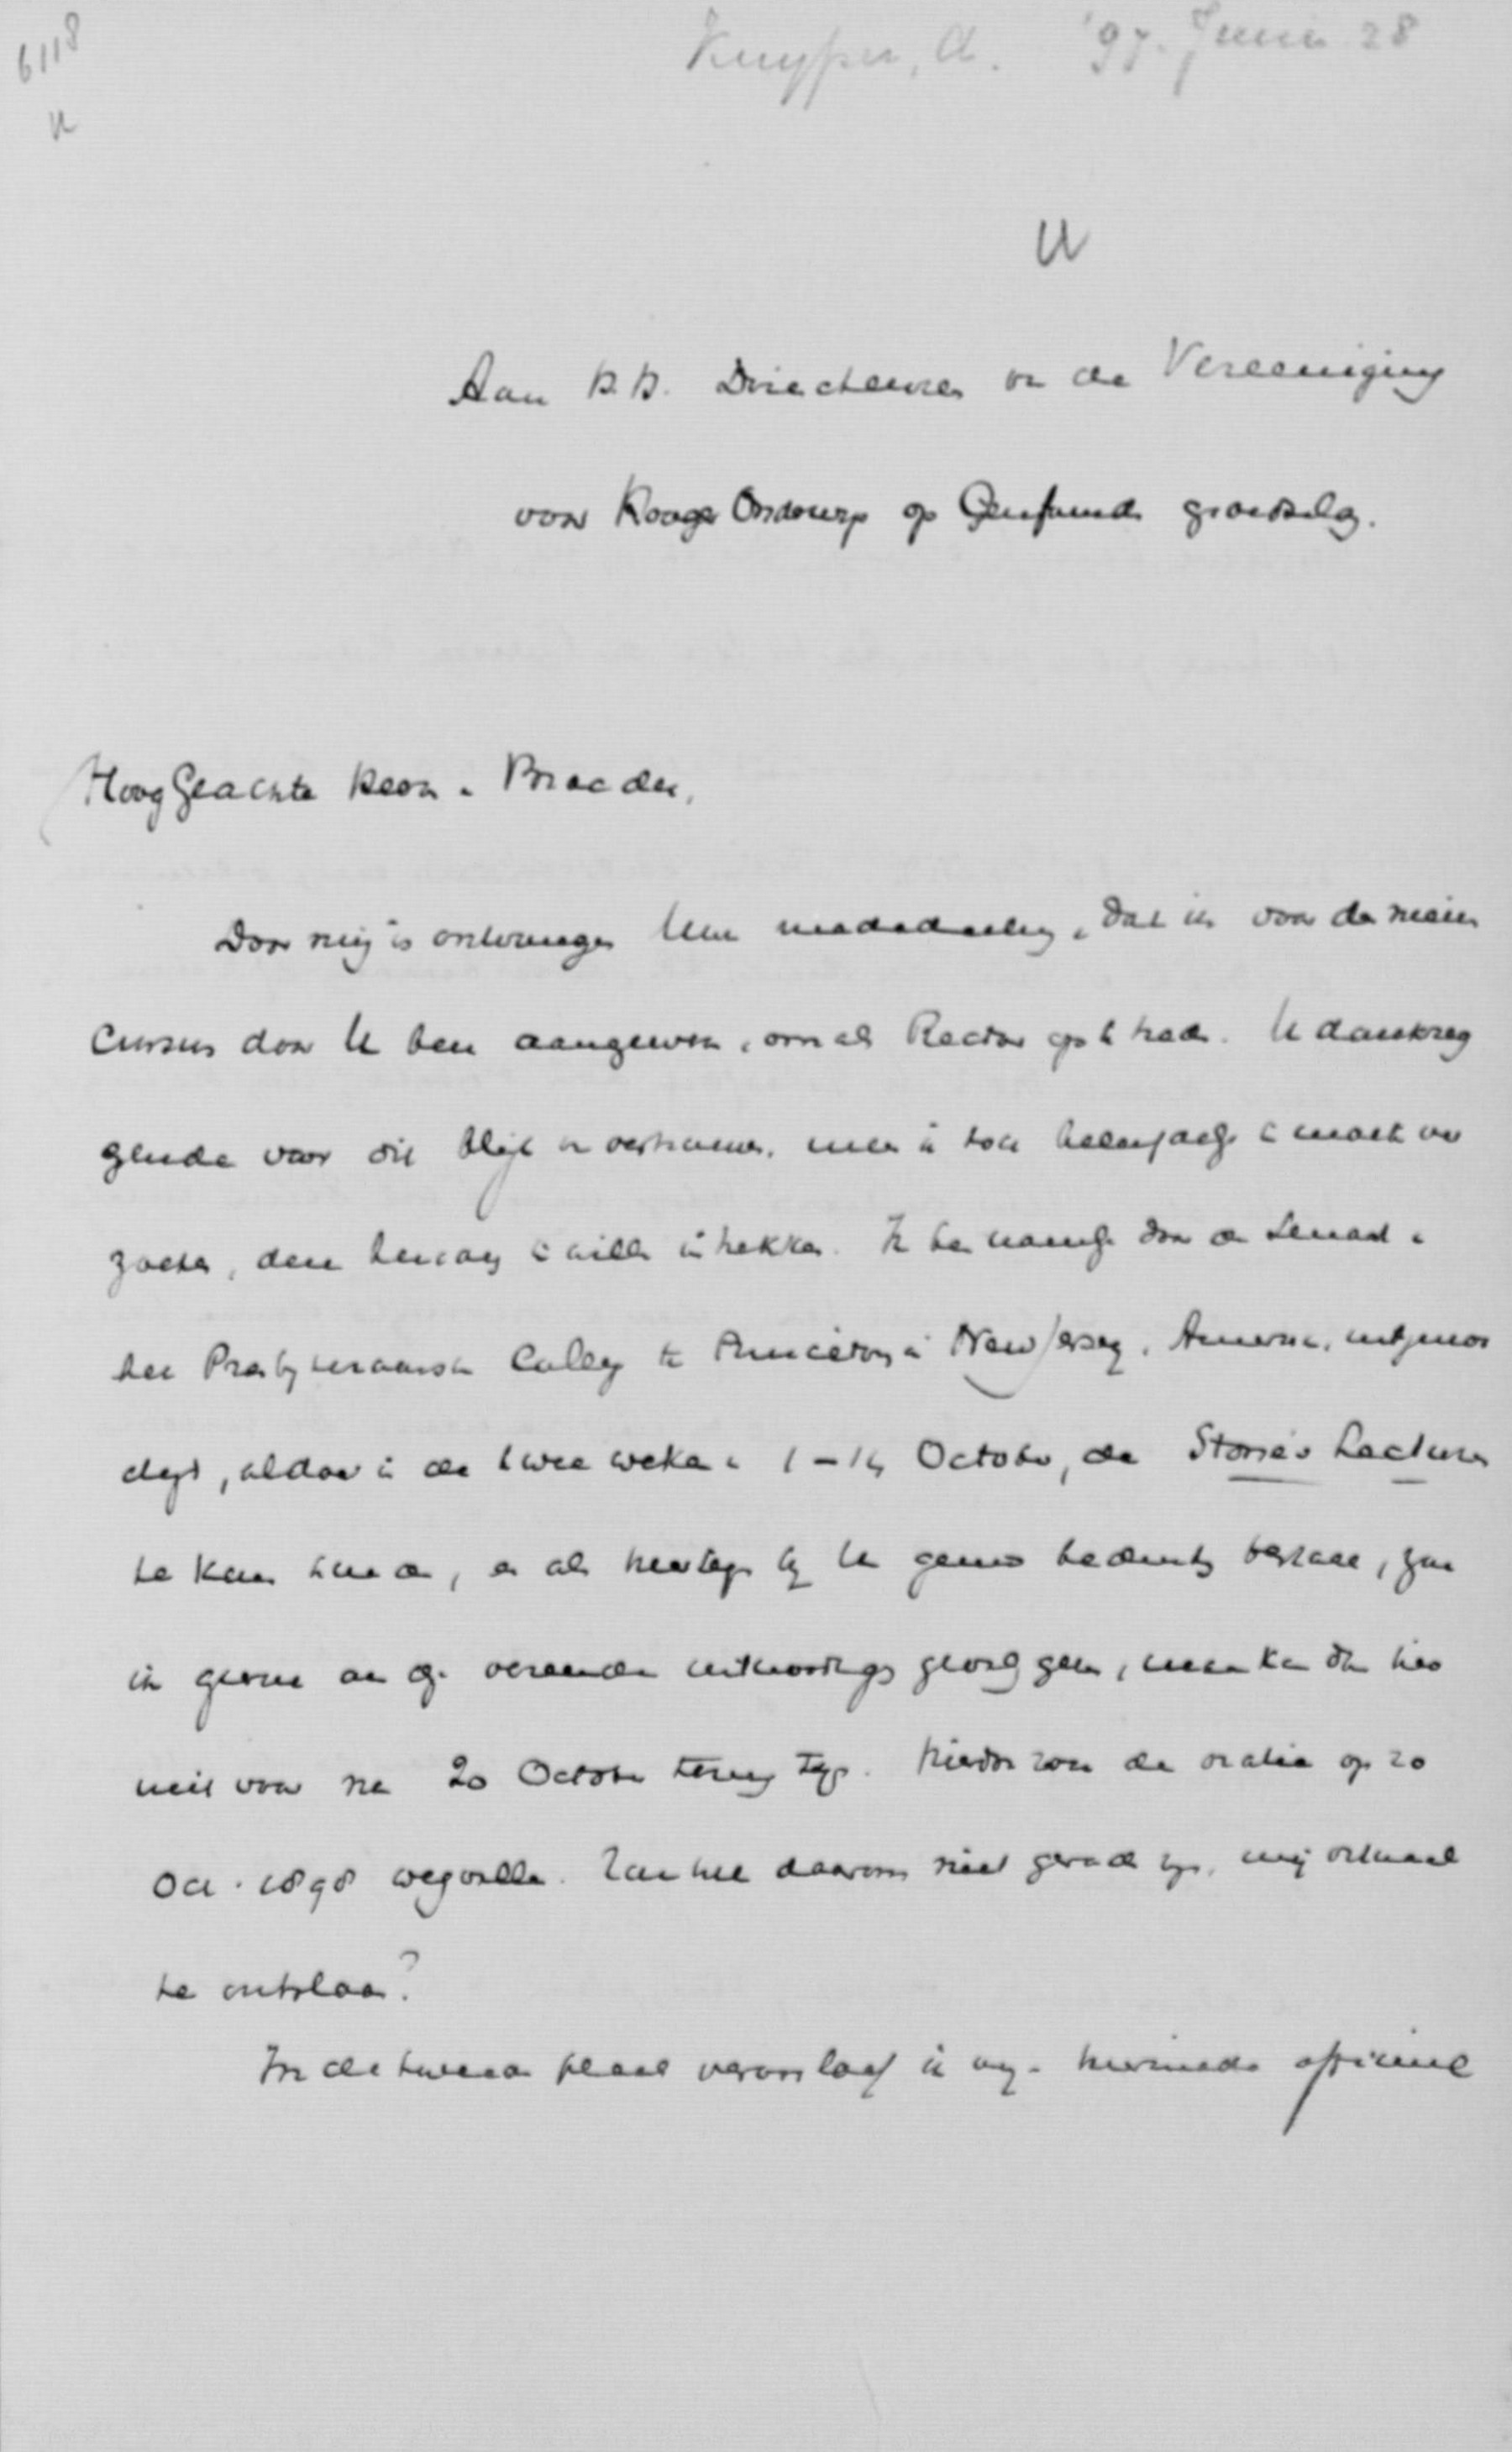 6118
Kuyper, A. '97. Juni 28
U
U
Aan H.H. Directeuren van de Vereeniging
voor Hooger Onderwijs op Gereformeerde grondslag.
HoogGeachte Heeren Broeders,
Door mij is ontvangen Uwe mededeeling, dat ik voor den nieuwen
Cursus door U ben aangewezen, om als Rector op te treden. U dankzeg
gende voor dit blijk van vertrouwen, meen ik toch te moeten ver
zoeken, deze te willen intrekken. Ik ben namelijk door den Senaat van
het Presbyteriaansch College te Princeton in New Jersey, Amerika, uitgenoo
digd, aldaar in de twee weken van 1-14 October, de Stone's Lectures
te komen houden, en als hiertegen bij U geene bedenking bestaat, zou
ik gaarne aan die vereerende uitnoodiging gevolg geven, maar kan dan hier
niet voor na 20 October terug zijn. Hierdoor zou de oratie op 20
Oct. 1898 wegvallen. Zou het daarom niet geraden zijn, mij ditmaal
te ontslaan?
In de tweede plaats veroorloof ik mij hiermede officieel